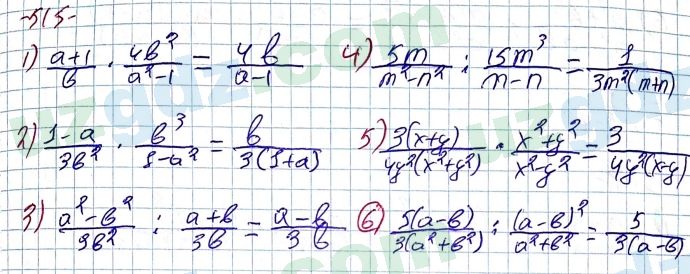 -515-
1) \frac{a+1}{b} \cdot \frac{4b^2}{a^2-1} = \frac{4b}{a-1}
4) \frac{5m}{m^2-n^2} : \frac{15m^3}{n-n} = \frac{1}{3m^2(m+n)}
2) \frac{1-a}{3b^2} \cdot \frac{b^3}{1-a^2} = \frac{b}{3(1+a)}
5) \frac{3(x+y)}{4y^2(x^2+y^2)} \cdot \frac{x^2+y^2}{x^2-y^2} = \frac{3}{4y^2(x-y)}
3) \frac{a^2-b^2}{9b^2} : \frac{a+b}{3b} = \frac{a-b}{3b}
6) \frac{5(a-b)}{3(a^2+b^2)} : \frac{(a-b)^2}{a^2+b^2} = \frac{5}{3(a-b)}